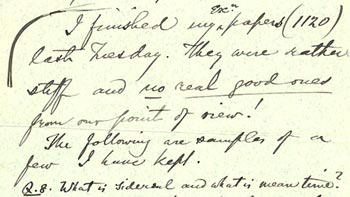 I finished my Exn papers (1120)
last Tuesday. They were rather
stiff and no real good ones
from our point of view!
The following are samples of a
few I have kept.
Q.8. What is sidereal and what is mean time?